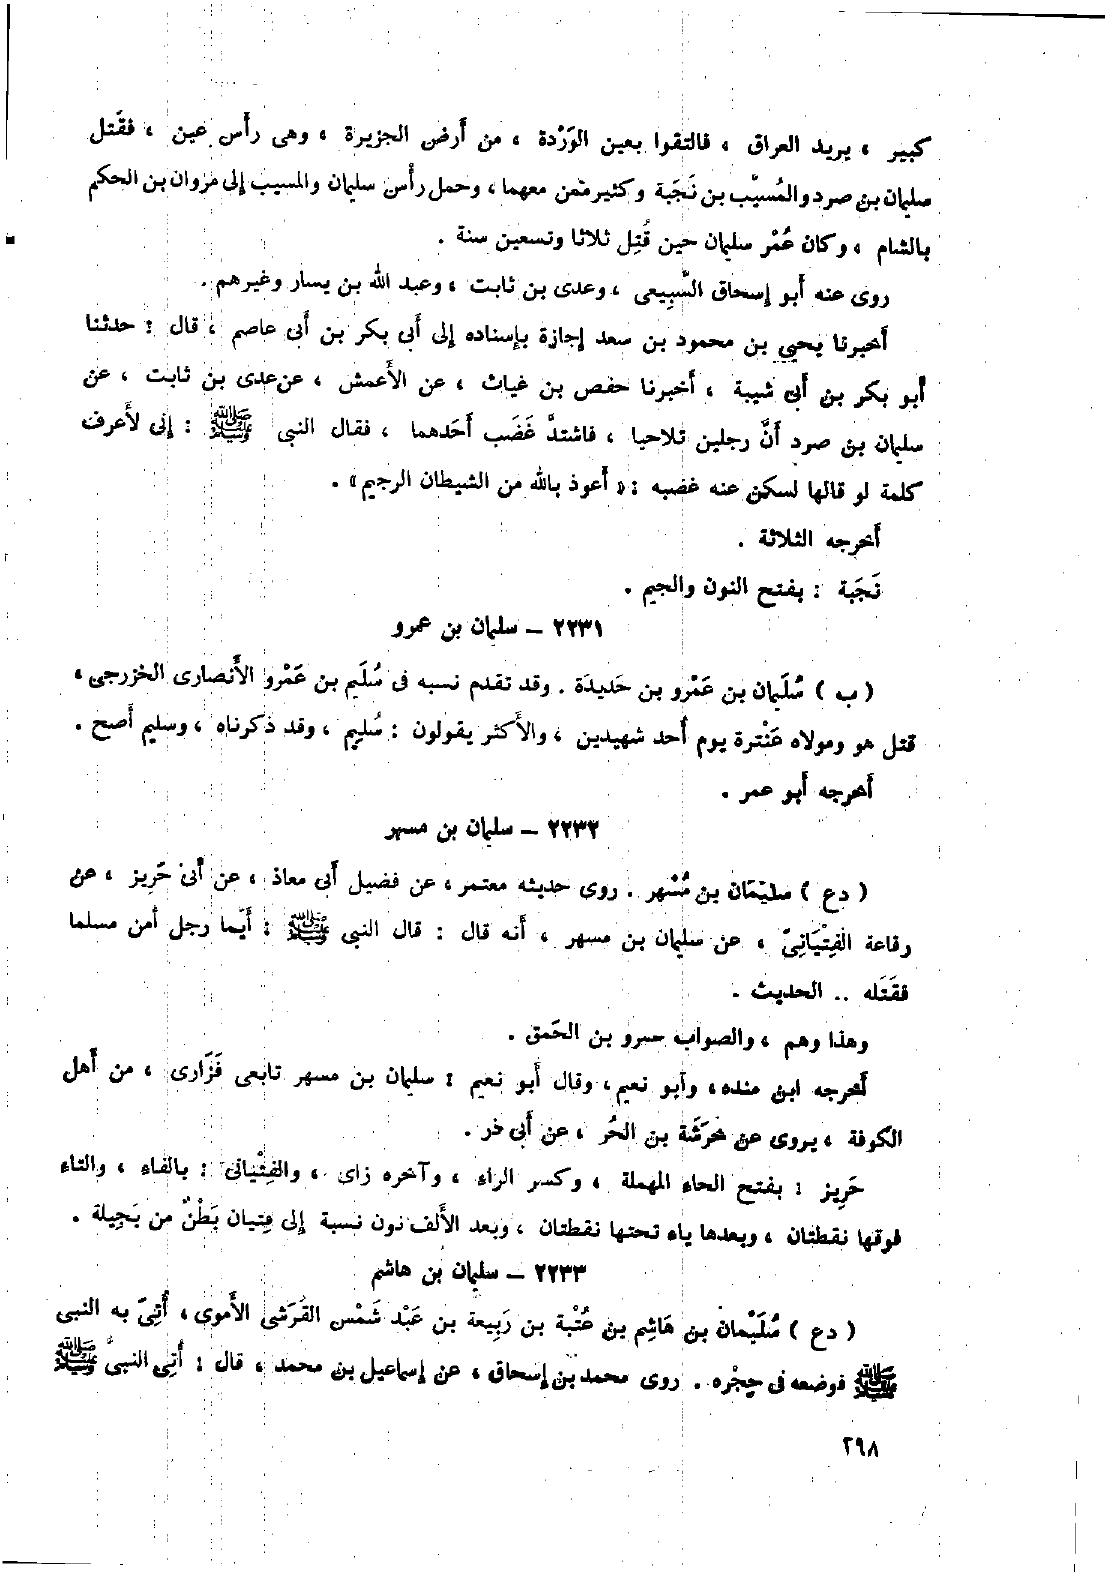 كبير ، يريد العراق ، فالتقوا بعين الوَرْدة ، من أرض الجزيرة ، وهى رأس عين ، فقُتل
سليمان بن صرد والمُسيَّب بن نَجَبة وكثير ممن معهما ، وحمل رأس سليمان والمسيب إلى مروان بن الحكم
بالشام ، وكان عُمْر سليمان حين قُتِل ثلاثا وتسعين سنة .
روى عنه أبو إسحاق السَّبِيعى ، وعدى بن ثابت ، وعبد الله بن يسار وغيرهم .
أخبرنا يحيى بن محمود بن سعد إجازة بإسناده إلى أبى بكر بن أبى عاصم ، قال : حدثنا
أبو بكر بن أبى شيبة ، أخبرنا حفص بن غياث ، عن الأعمش ، عن عدى بن ثابت ، عن
سليمان بن صرد أنَّ رجلين تلاحيا ، فاشتدَّ غَضَب أحَدهما ، فقال النبى ﷺ : إنى لأعرف
كلمة لو قالها لسكن عنه غضبه : « أعوذ بالله من الشيطان الرجيم » .
أخرجه الثلاثة .
نَجَبة : بفتح النون والجيم .
٢٢٣١ – سليمان بن عمرو
( ب ) سُلَيمان بن عَمْرو بن حَديدَة . وقد تقدم نسبه فى سُلَيم بن عَمْرو الأنصارى الخزرجى ،
قتل هو ومولاه عَنْترة يوم أحد شهيدين ، والأكثر يقولون : سُليم ، وقد ذكرناه ، وسليم أصح .
أخرجه أبو عمر .
٢٢٣٢ – سليمان بن مسهر
( دع ) سليمان بن مُسْهر . روى حديثه معتمر ، عن فضيل أبى معاذ ، عن أبى حَرِيز ، عن
رفاعة الفِتْيَانِىّ ، عن سليمان بن مسهر ، أنه قال : قال النبى ﷺ : أيّما رجل أمن مسلما
فقَتَله .. الحديث .
وهذا وهم ، والصواب عمرو بن الحَمق .
أخرجه ابن منده ، وأبو نعيم ، وقال أبو نعيم : سليمان بن مسهر تابعى فَزَارى ، من أهل
الكوفة ، يروى عن خَرَشَة بن الحُر ، عن أبى ذر .
حَرِيز : بفتح الحاء المهملة ، وكسر الراء ، وآخره زاى ، والفِتْيانى : بالفاء ، والتاء
فوقها نقطتان ، وبعدها ياء تحتها نقطتان ، وبعد الألف نون نسبة إلى فِتيان بَطْنٌ من بَجِيلة .
٢٢٣٣ – سليمان بن هاشم
( دع ) سُلَيْمان بن هَاشِم بن عُتْبة بن رَبِيعة بن عَبْد شَمْس القُرَشى الأموى ، أُتِىَ به النبى
ﷺ فوضعه فى حِجْره . روى محمد بن إسحاق ، عن إسماعيل بن محمد ، قال : أُتِى النبىُّ ﷺ
٢٩٨